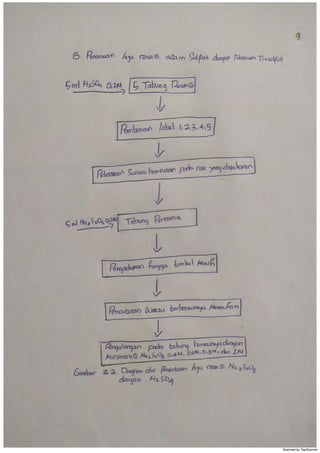 9
B. Penentuan laju reaksi asam Sulfat dengan Natrium Tiosulfat
5 ml H2SO4 0,1M
5 Tabung Reaksi
Pemberian label 1,2,3,4,5
Peletakan Secara berurutan pada rak yang disediakan
5 ml Na2S2O3
Tabung Pertama
Pengadukan hingga timbul keruh
Pencatatan Waktu terbentuknya kekeruhan
Pengulangan pada tabung berikutnya dengan
konsentrasi Na2S2O3 0,4M, 0,6M, 0,8M, dan 1M
Gambar 2.2 Diagram alir Penentuan laju reaksi Na2S2O3
dengan H2SO4
Scanned by TapScanner